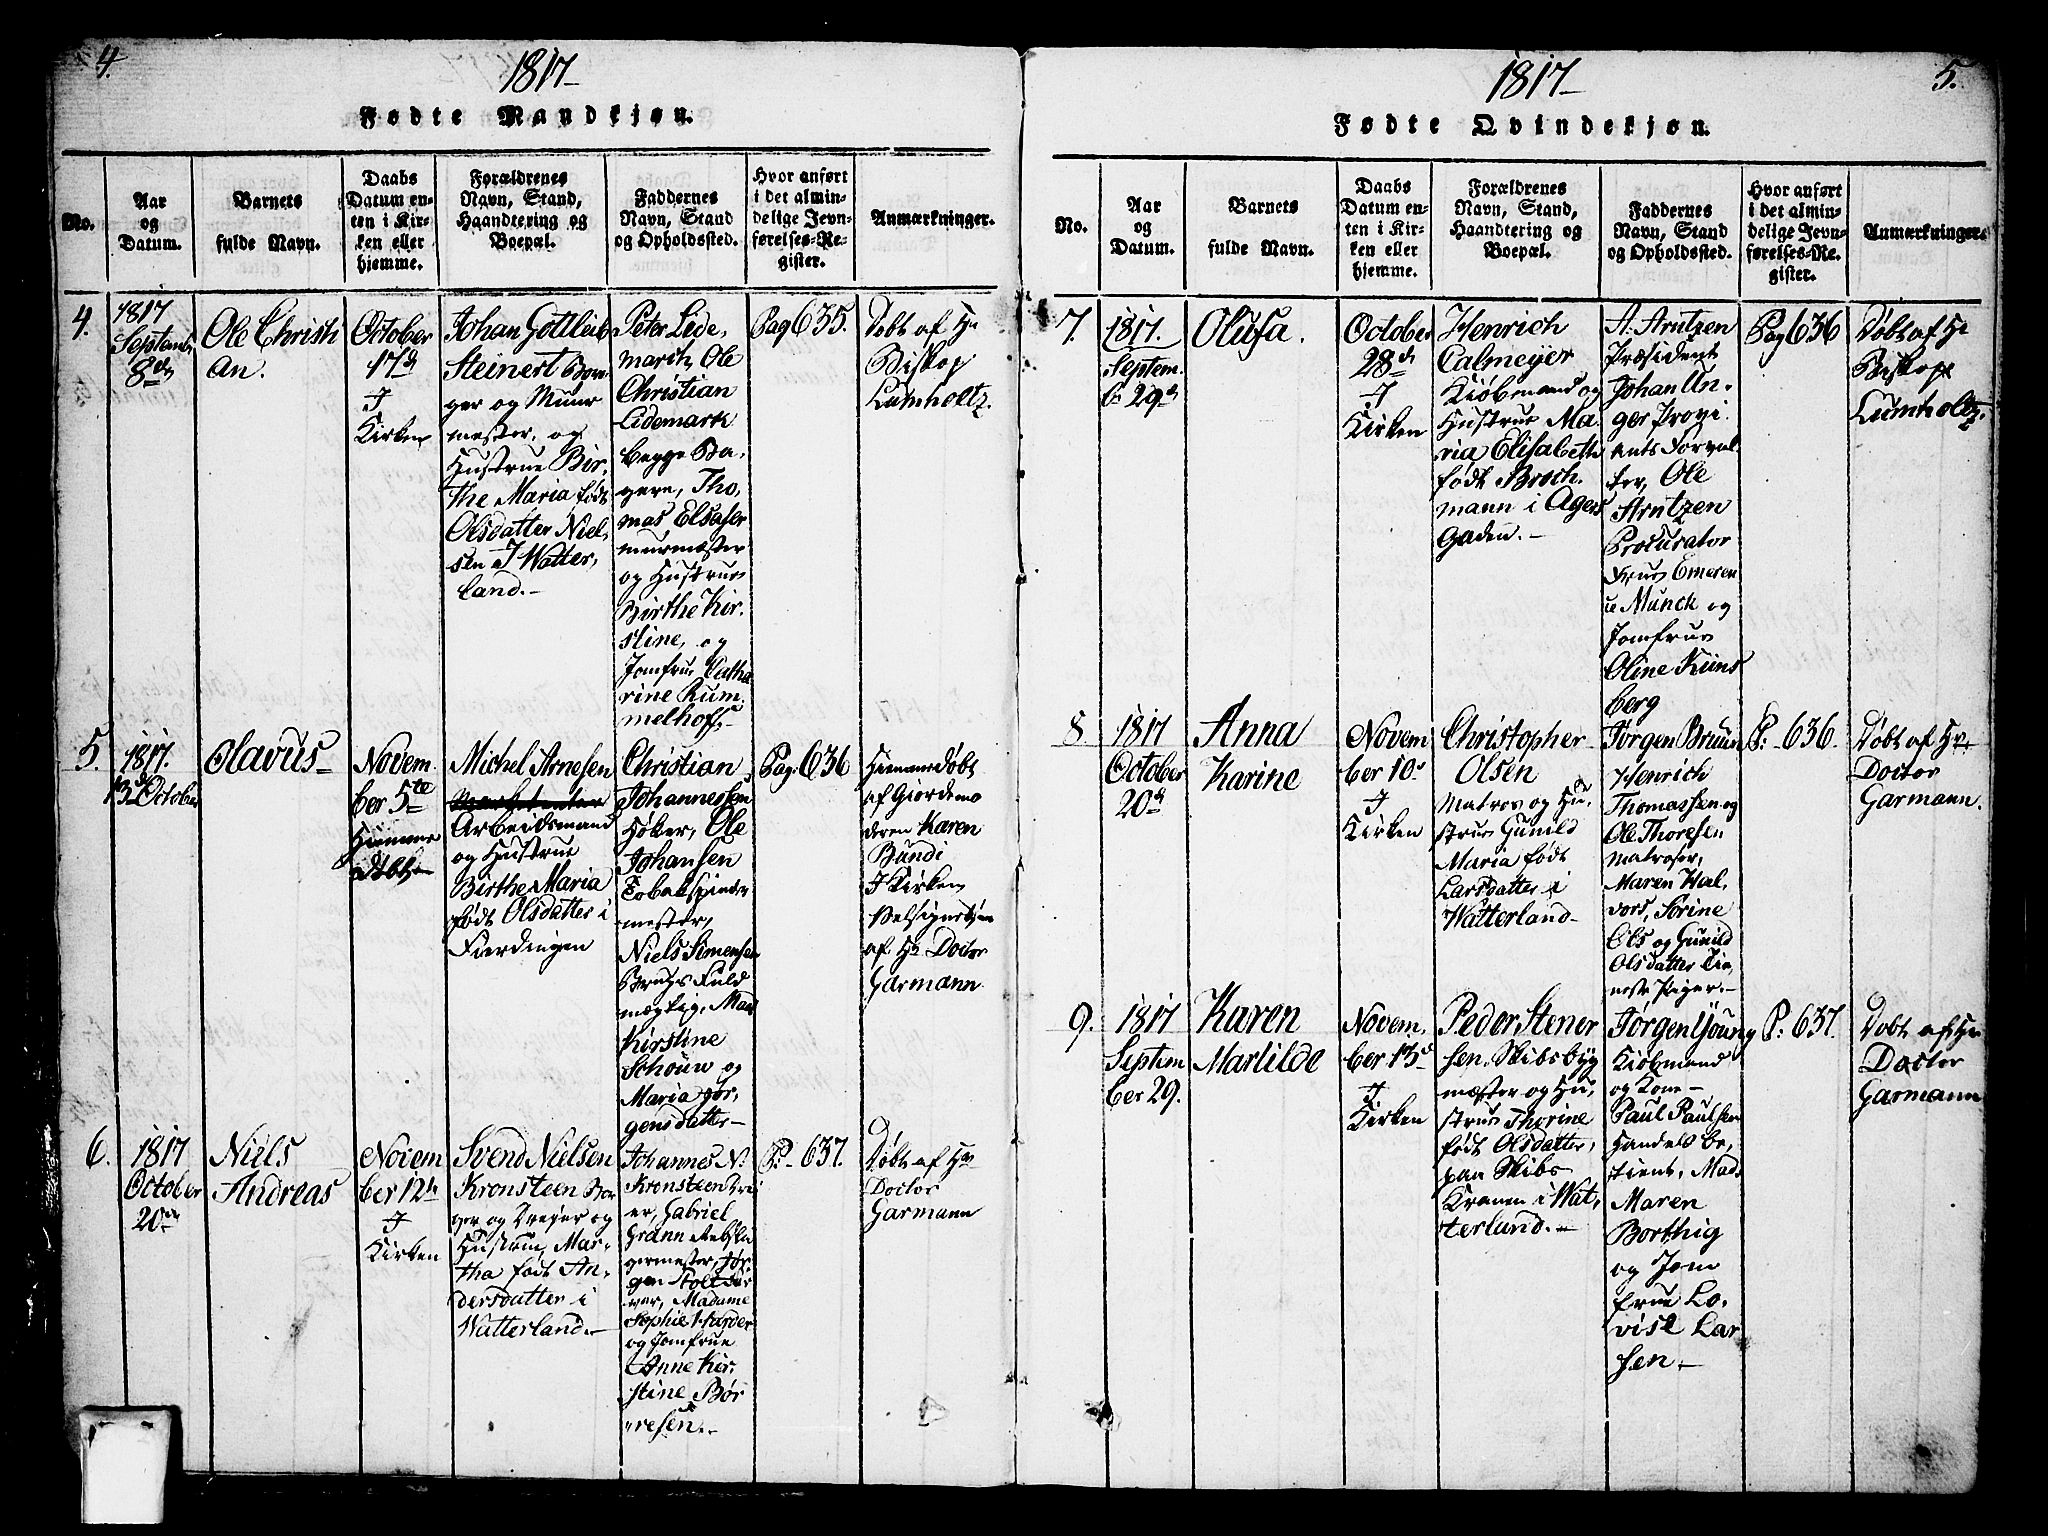 4.
1817
Fødte Mandkjøn.
No.
Aar
og
Datum.
Barnets
fulde Navn.
Daabs
Datum en-
ten i Kir-
ken eller
hjemme.
Forældrenes
Navn, Stand,
Haandtering og
Boepæl.
Faddernes
Navn, Stand
og Opholdssted.
Hvor anført
i det almin-
delige Jevn-
førelses-Re-
gister.
Anmærkninger.
4.
1817
Septemb.
8de
Ole Christi
an.
October
17d
I
Kirken
Johan Gottlieb
Steinert Bor-
ger og Muur
mester, og
Hustrue Bir-
the Maria født
Olsdatter Niel-
sen I Watter-
land.-
Peter Lide-
mark, Ole
Christian
Lidemark
begge Ba-
gere, Tho-
mas Elsaser
muurmester
og Hustrue
Birthe Kir-
stine, og
Jomfrue Catha
rine Rum-
melhoff.-
Pag 635.
Døbt af Hr
Biskop
Lumholtz.
5.
1817.
13d October
Olavus
Novem-
ber 5te
Hiemme
døbt
Michel Arnesen
Arbeidsmand
og Hustrue
Birthe Maria
født Olsdatter i
Fierdingen
Christian
Johannessen
Høker, Ole
Johansen
Tobakspinder
mester,
Niels Simensen
Brugs Fuld
mægtig, Mad
Kirstine
Schouw og
Maria Jør-
gensdatter-
Pag. 636
Hiemmedøbt
af Giordemo
deren Karen
Bundi
I Kirken
Velsignelsen
af Hr Doctor
Garmann
6.
1817
October
20de
Niels
Andreas
Novem
ber 12te
I
Kirken
Svend Nielsen
Kronsteen Bor
ger og Dreyer og
Hustrue, Mar-
tha født An-
dersdatter i
Watterland.-
Johannes N.
Kronsteen Drei
er, Gabriel
Grann
germester, Jør-
gen Stoltz
Madame
Sophie Harder
og Jomfrue
Anne Kir-
stine Bør
resen.-
P:- 637.
Døbt af Hr
Doctor
Garmann
1817
5.
Fødte Qvindekjøn.
No.
Aar
og
Datum.
Barnets
fulde Navn.
Daabs
Datum en-
ten i Kir-
ken eller
hjemme.
Forældrenes
Navn, Stand,
Haandtering og
Boepæl.
Faddernes
Navn, Stand
og Opholdssted.
Hvor anført
i det almin-
delige Jevn-
førelses-Re-
gister.
Anmærkninger.
7.
1817.
Septem-
b: 29d
Olusa.
October
28de
I
Kirken
Henrich
Calmeyer
Kiøbmand og
Hustrue Ma-
ria Elisabeth
født Broch-
mann i Agers
Gaden.-
A. Arntzen
Præsident
Johan Un-
ger Provi-
ants Forval-
ter, Ole
Arntzen
Procurator
Frue Emeren
ce Munck og
Jomfrue
Oline Kiins
berg
Pag 636
Døbt af Hr
Biskop
Lumholtz.
8
1817
October
20d
Anna
Karine
Novem
ber 10d
I
Kirken
Christopher
Olsen
Matros og Hu-
strue Gunild
Maria født
Larsdatter i
Watterland-
Jørgen Bruun
Henrich
Thomassen og
Ole Thoresen
Matroser,
Maren Hal-
vors, Sorine
Ols og Gunild
Olsdatter Tie-
neste Piger.-
P: -636.
Døbt af Hr.
Doctor
Garmann.
9.
1817
Septem
ber 29.
Karen
Martilde
Novem-
ber 13d
I
Kirken
Peder Stener
sen, Skibsbyg
mester og Hu-
strue Thorine
født Olsdatter,
paa Skibs
Kranen i Wat-
terland.-
Jørgen Young
Kiøbmand
og Kone-
Paul Paulsen
Handels be-
tient, Mad.
Maren
Borthig
og Jom
frue Lo-
vise Lar
sen.-
P: 637.
Døbt af Hr
Doctor
Garmann